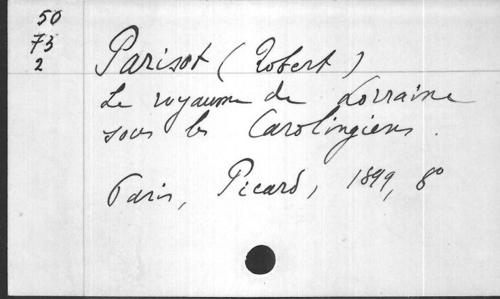 50
73
2
Parisot (Robert)
Le royaume de Lorraine
sous les Carolingiens.
Paris, Picard, 1899, 8°